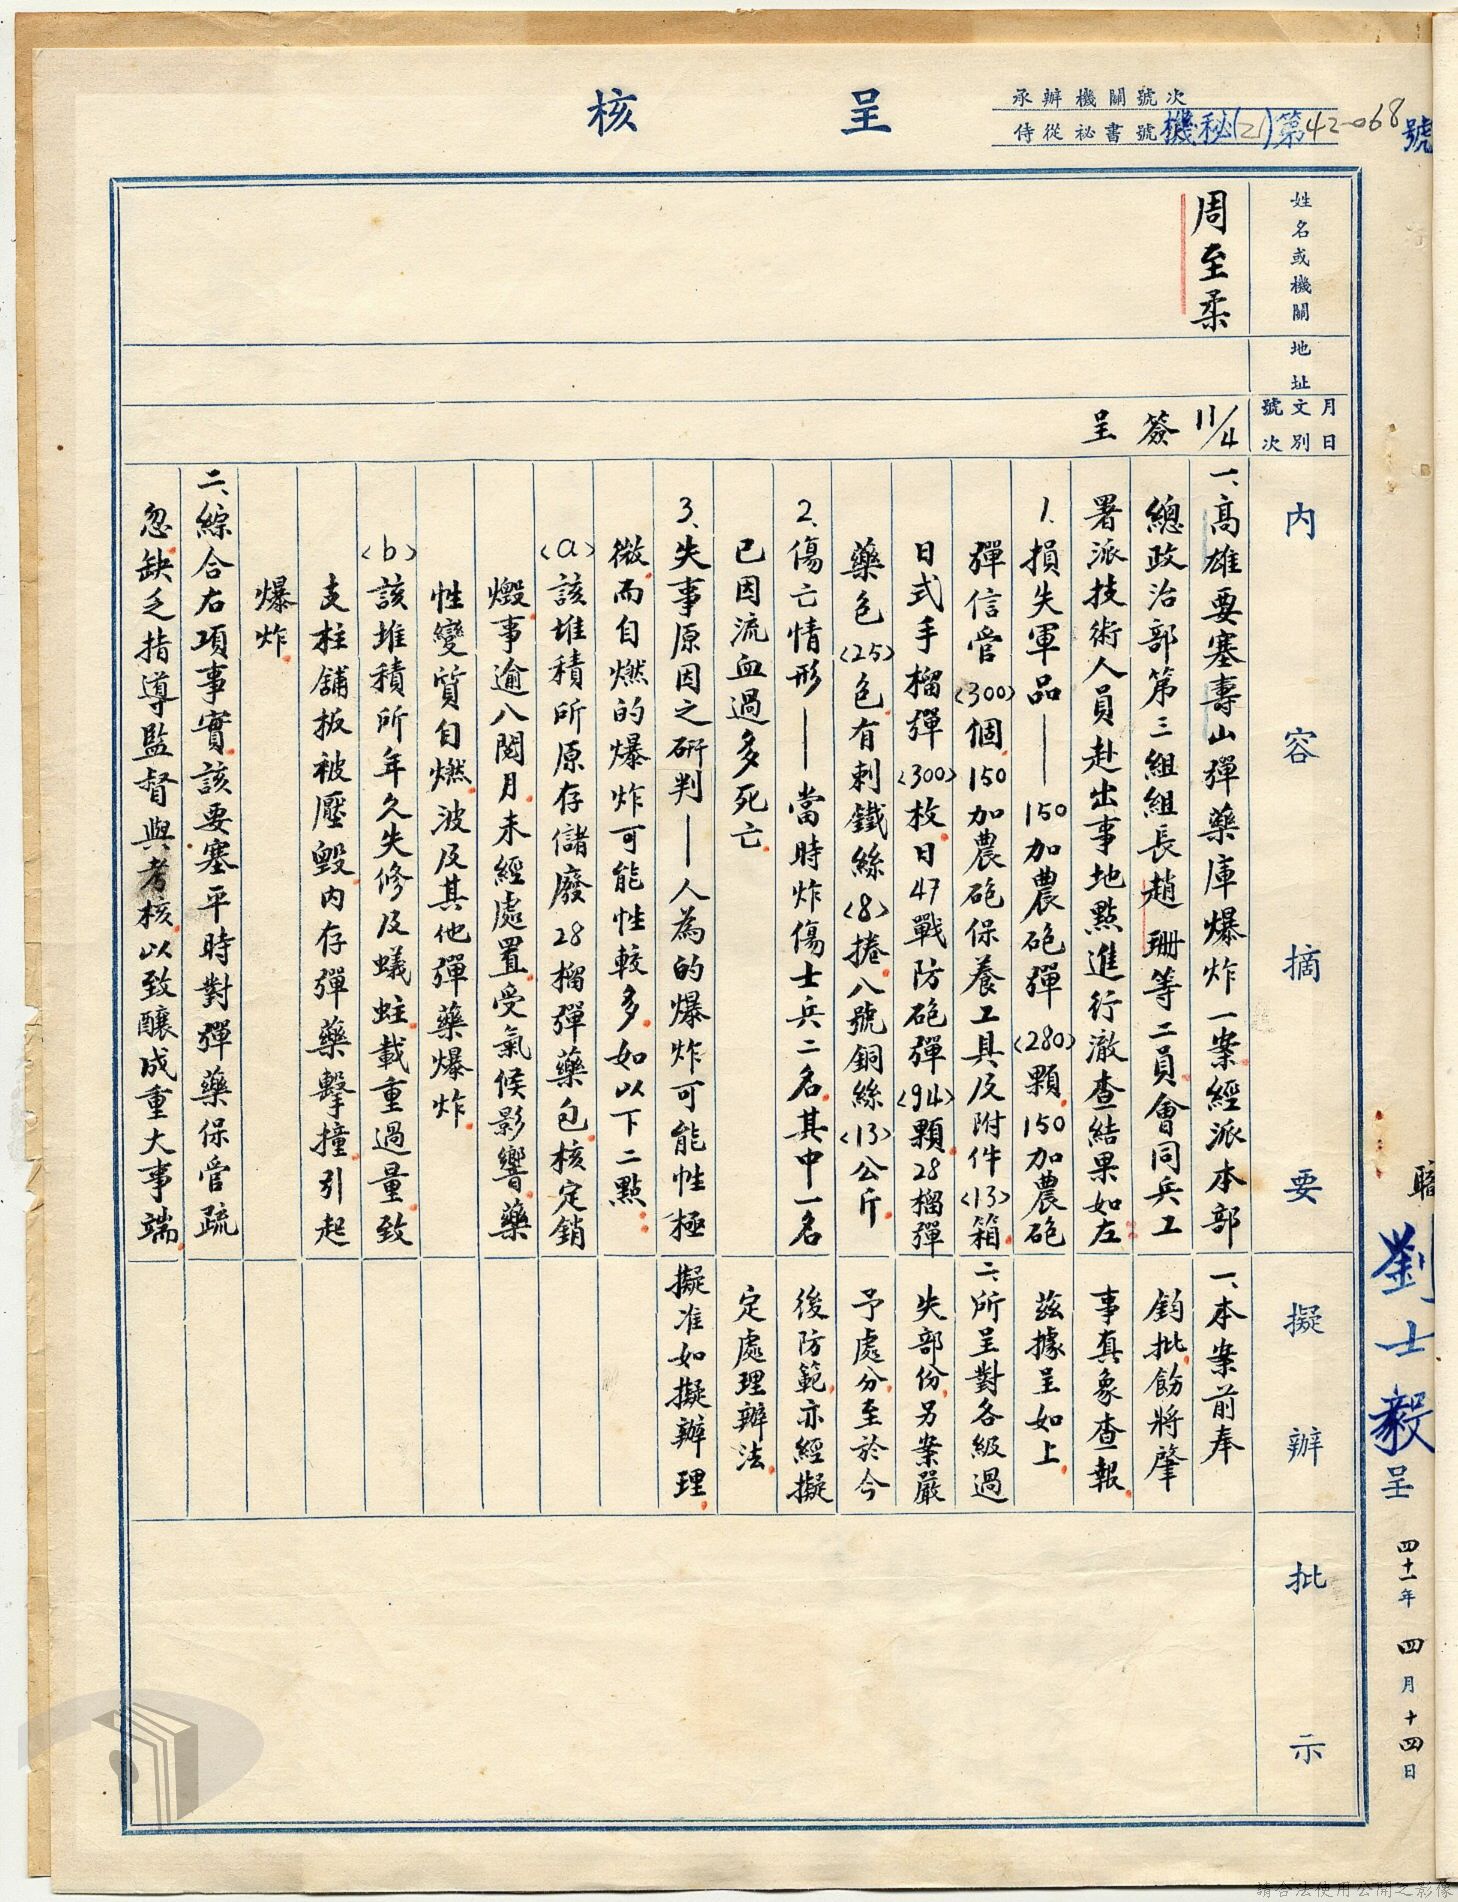 呈核
承辦機關號次
侍從祕書號 機秘(乙)第42-068號
職
劉士毅
呈
四十一年四月十四日
姓名或機關
地址
月日
文別
號次
內容摘要
擬辦
批示
周至柔
11/4
簽
呈
一、高雄要塞壽山彈藥庫爆炸一案經派本部
總政治部第三組組長趙珊等二員會同兵工
署派技術人員赴出事地點進行澈查結果如左
1. 損失軍品——150加農砲彈(280)顆150加農砲
彈信管(300)個150加農砲保養工具及附件(13)箱
日式手榴彈(300)枚日47戰防砲彈(94)顆28榴彈
藥包(25)包有刺鐵絲(8)捲八號銅絲(13)公斤
2. 傷亡情形——當時炸傷士兵二名其中一名
已因流血過多死亡
3. 失事原因之研判——人為的爆炸可能性極
微而自燃的爆炸可能性較多如以下二點
(a)該堆積所原存儲廢28榴彈藥包核定銷
燬事逾八閱月未經處置受氣候影響藥
性變質自燃波及其他彈藥爆炸
(b)該堆積所年久失修及蟻蛀載重過量致
支柱舖板被壓毀內存彈藥擊撞引起
爆炸
二、綜合右項事實該要塞平時對彈藥保管疏
忽缺乏指導監督與考核以致釀成重大事端
一、本案前奉
鈞批飭將肇
事真象查報
茲據呈如上
二、所呈對各級過
失部份另案嚴
予處分至於今
後防範亦經擬
定處理辦法
擬准如擬辦理
請合法使用公開之影像